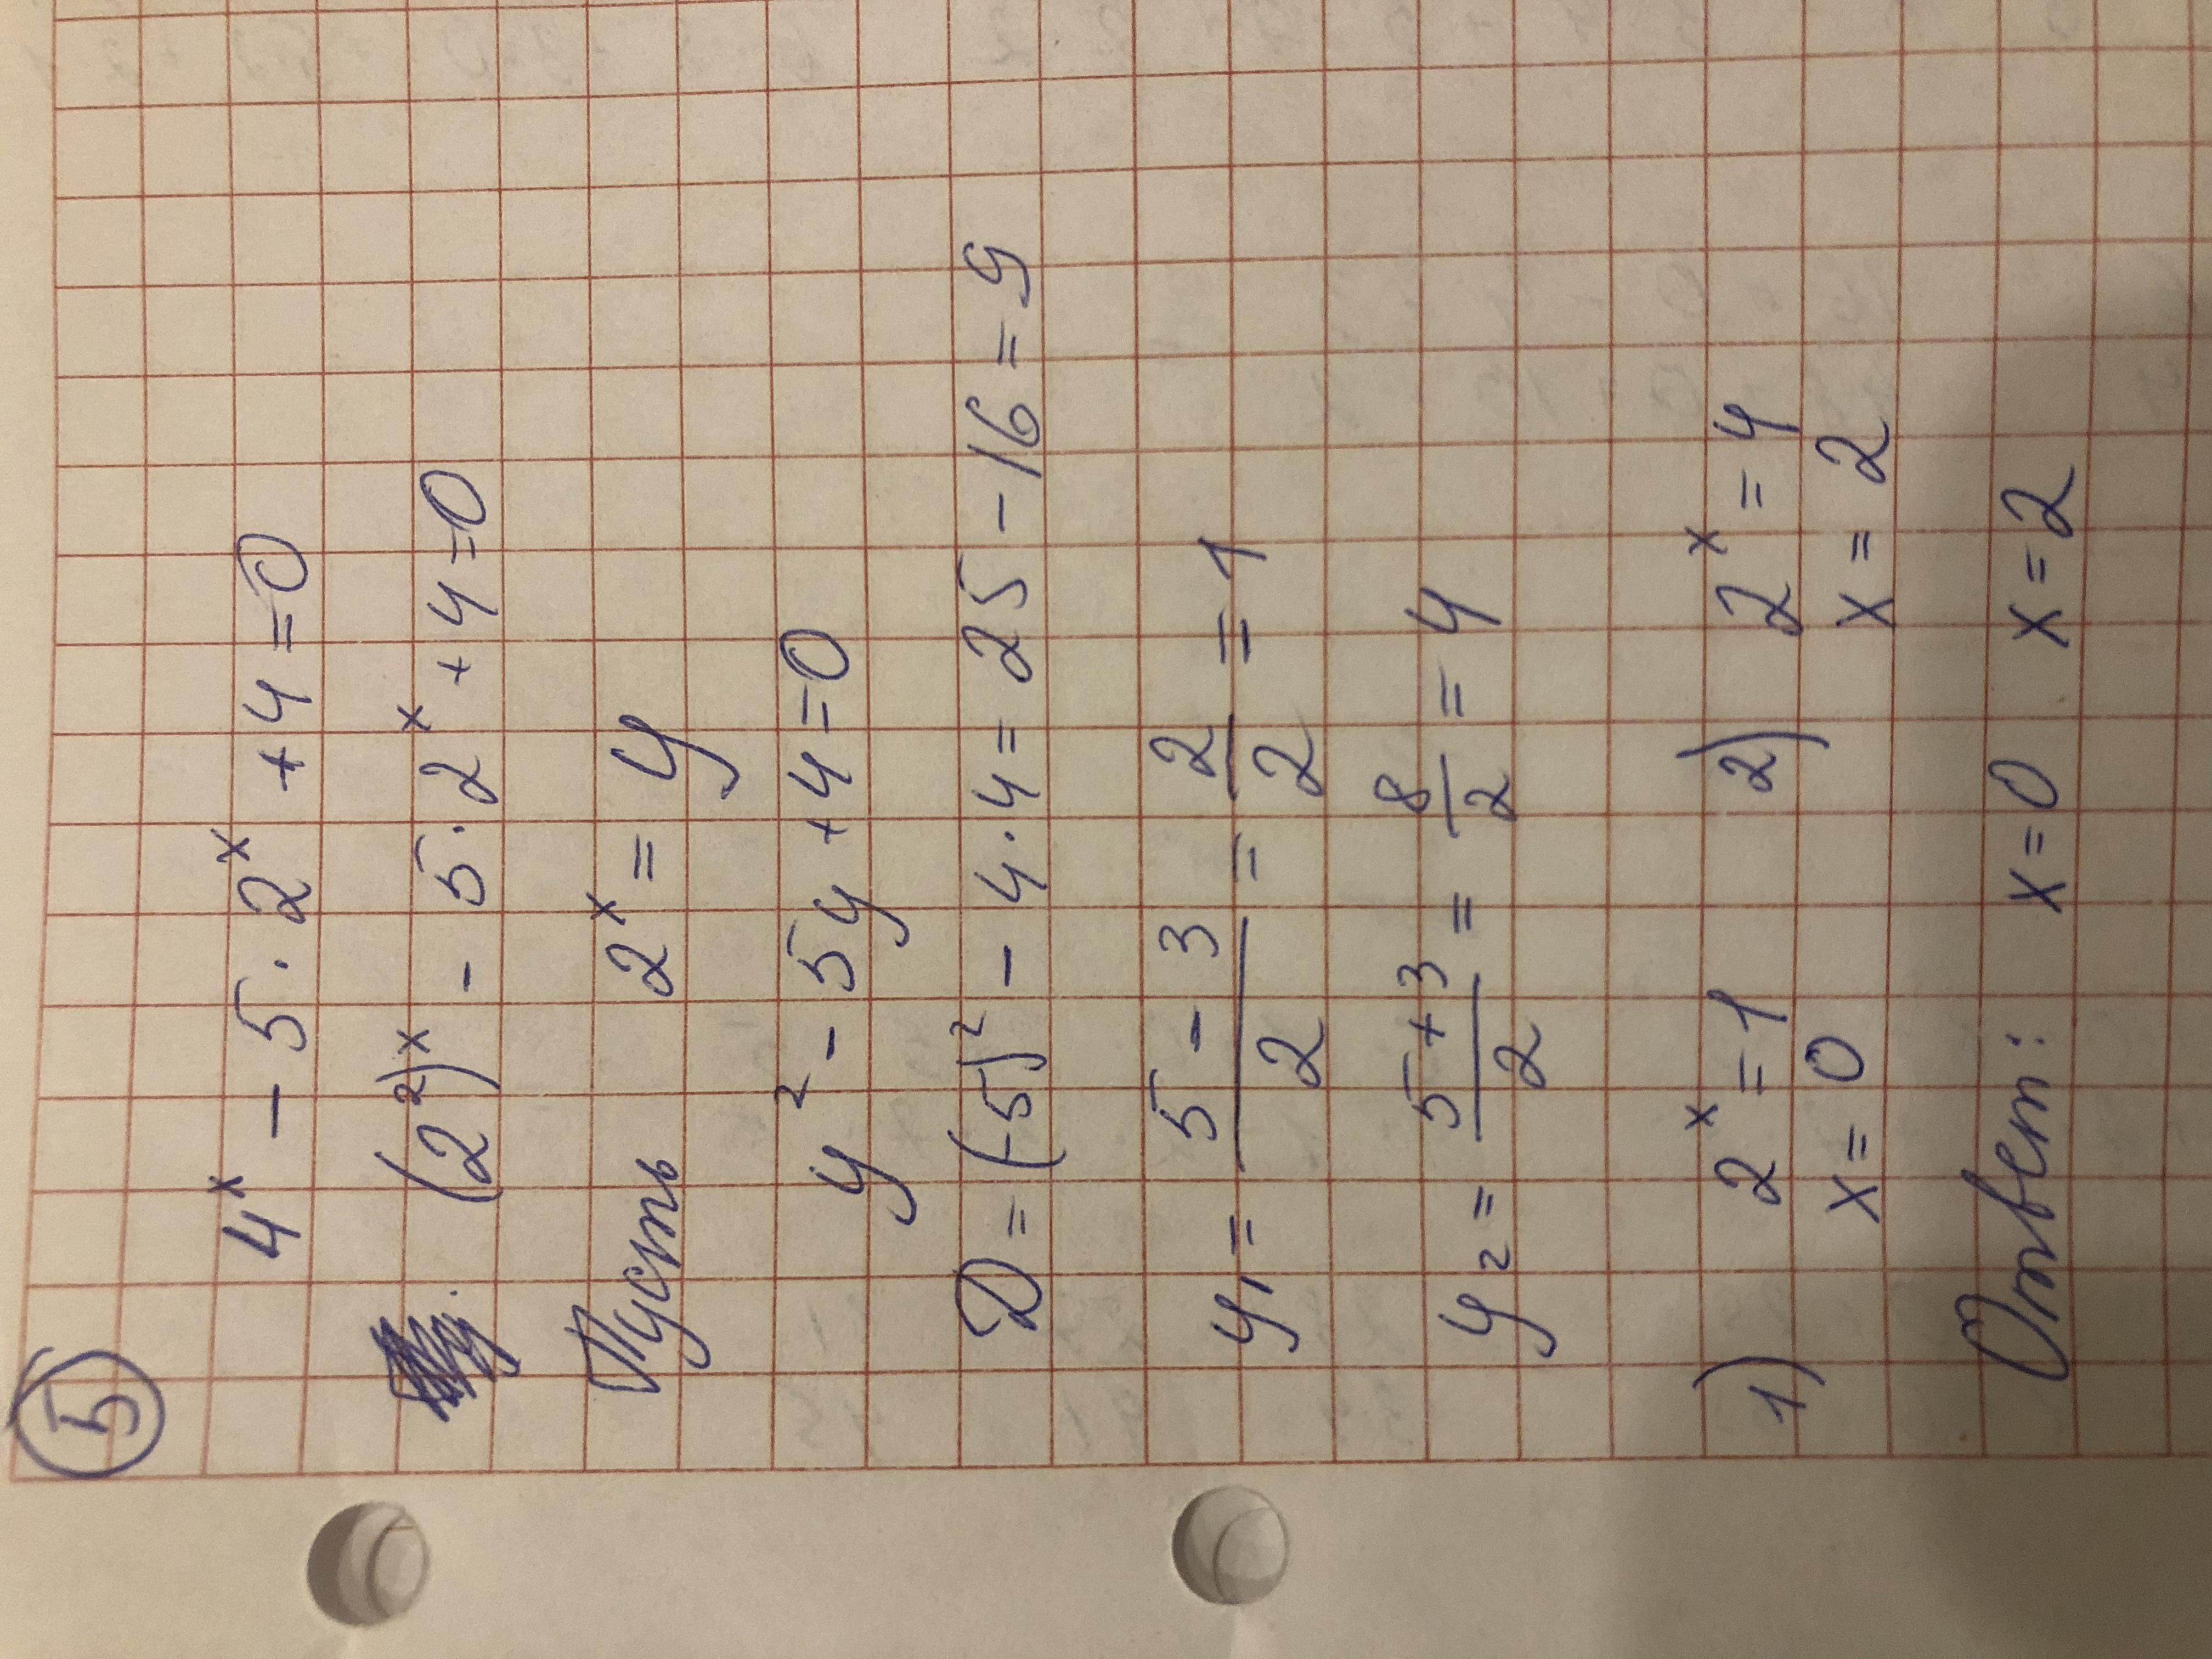 5
4ˣ - 5 · 2ˣ + 4 = 0
(2²)ˣ - 5 · 2ˣ + 4 = 0
Пусть 2ˣ = y
y² - 5y + 4 = 0
D = (-5)² - 4 · 4 = 25 - 16 = 9
y₁ = (5 - 3)/2 = 2/2 = 1
y₂ = (5 + 3)/2 = 8/2 = 4
1) 2ˣ = 1 2) 2ˣ = 4
x = 0 x = 2
Ответ: x = 0 x = 2